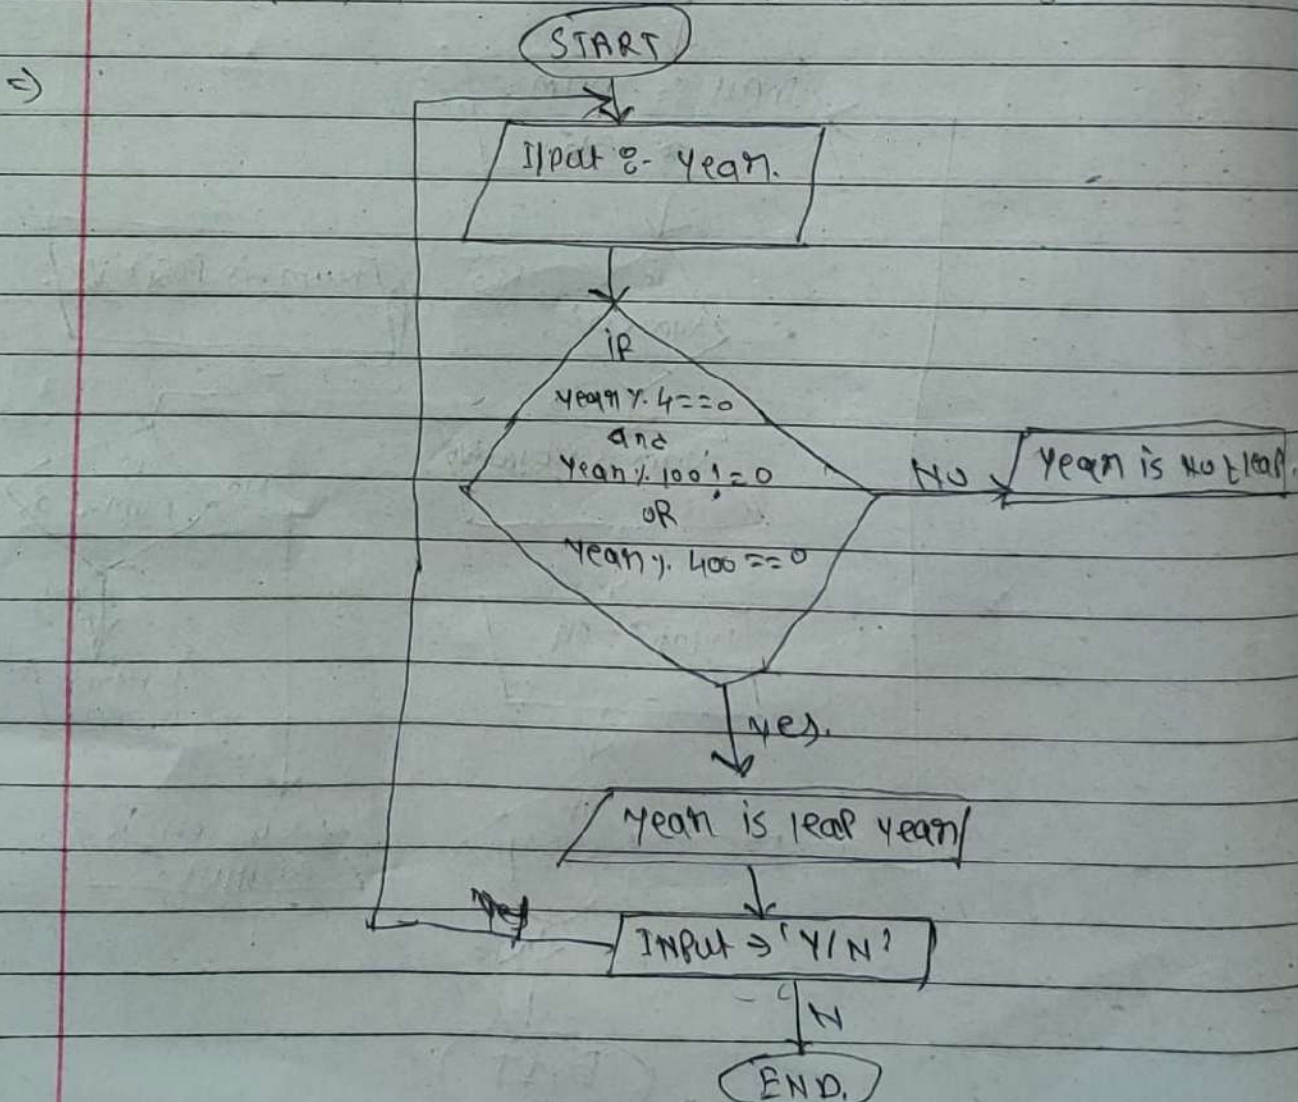 =)
START
I/put :- Year.
if
Year % 4 == 0
and
Year % 100 != 0
OR
Year % 400 == 0
No
Year is Not leap.
yes.
Year is leap year
Yes
INPut → 'Y/N'
N
END.